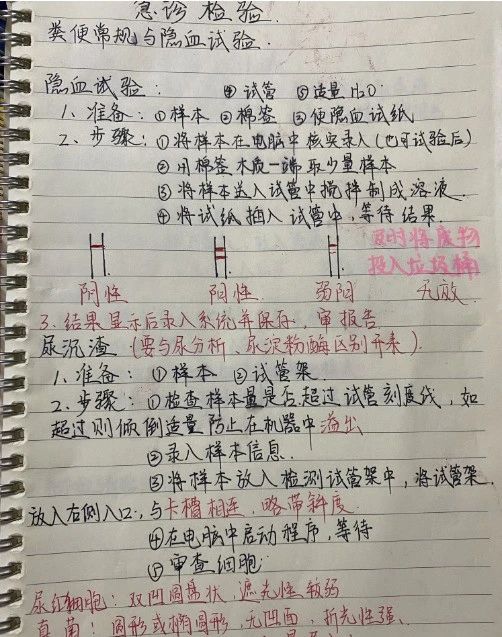 急诊检验
粪便常规与隐血试验.
隐血试验: ④试管 ⑤适量H₂O
1、准备: ①样本 ②棉签 ③便隐血试纸
2、步骤: ①将样本在电脑中核实录入(也可试验后)
②用棉签木质一端取少量样本
③将样本送入试管中搅拌制成溶液.
④将试纸插入试管中,等待结果.
及时将废物
投入垃圾桶
阴性 阳性. 弱阳 无效.
3.结果显示后录入系统并保存,审报告
尿沉渣 (要与尿分析、尿淀粉酶区别开来).
1、准备: ①样本 ②试管架.
2、步骤: ①检查样本量是否超过试管刻度线,如
超过则倾倒适量防止在机器中溢出
②录入样本信息.
③将样本放入检测试管架中,将试管架
放入右侧入口,与卡槽相连,略带斜度.
④在电脑中启动程序,等待
⑤审查细胞
尿红细胞: 双凹圆盘状,遮光性较弱
真菌: 圆形或椭圆形,无凹面,折光性强、